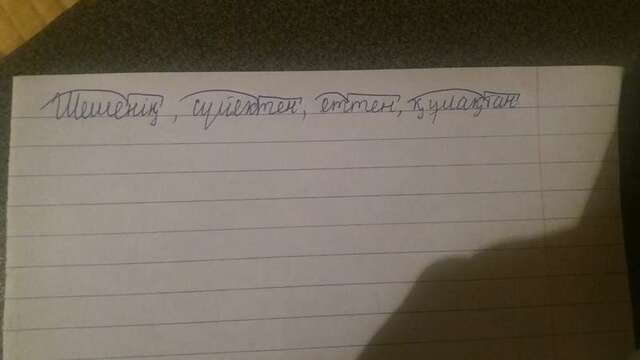 Шешенің, сүйектен, еттен, құлақтан